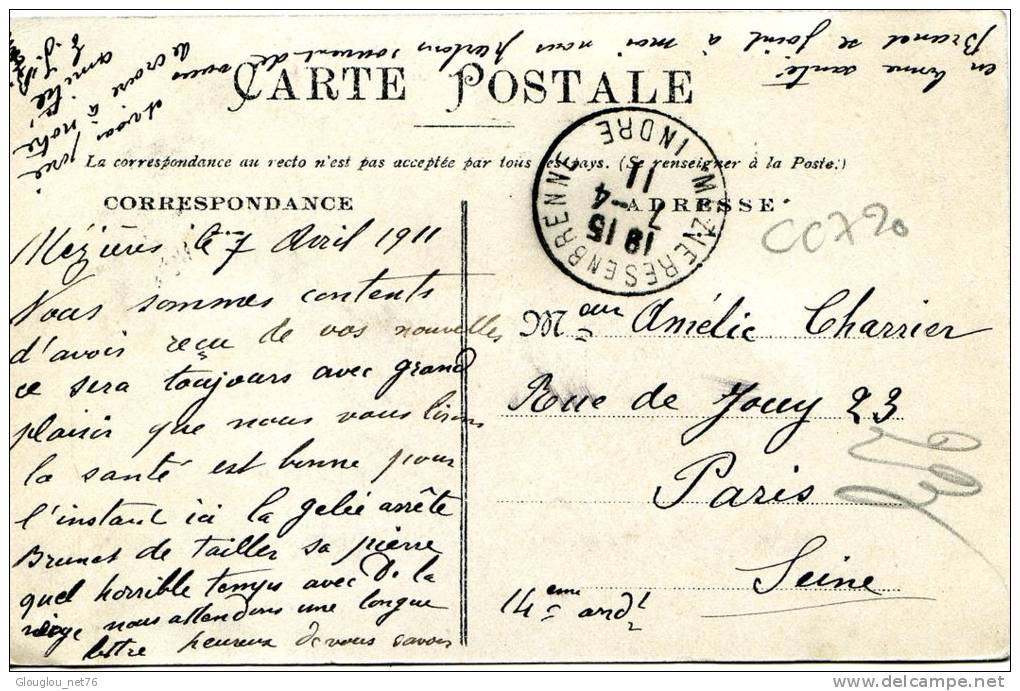 CARTE POSTALE
La correspondance au recto n'est pas acceptée par tous les pays. (Se renseigner à la Poste.)
CORRESPONDANCE
Mézières le 7 Avril 1911
Nous sommes contents
d'avoir reçu de vos nouvelles
ce sera toujours avec grand
plaisir que nous vous lirons
la santé est bonne pour
l'instant ici la gelée arrête
Brunet de tailler sa pierre
quel horrible temps avec de la
nous attendons une longue
lettre heureux de vous savoir
en bonne santé
Brunet se joint à moi nous parlons souvent de vous
de croire à notre
amitié
ADRESSE
MEZIERES EN BRENNE INDRE
18 15
7 -4
11
CC720
Mme Amélie Charrier
Rue de Jouy 23
Paris
Seine
14ème ardt
Glouglou_net76